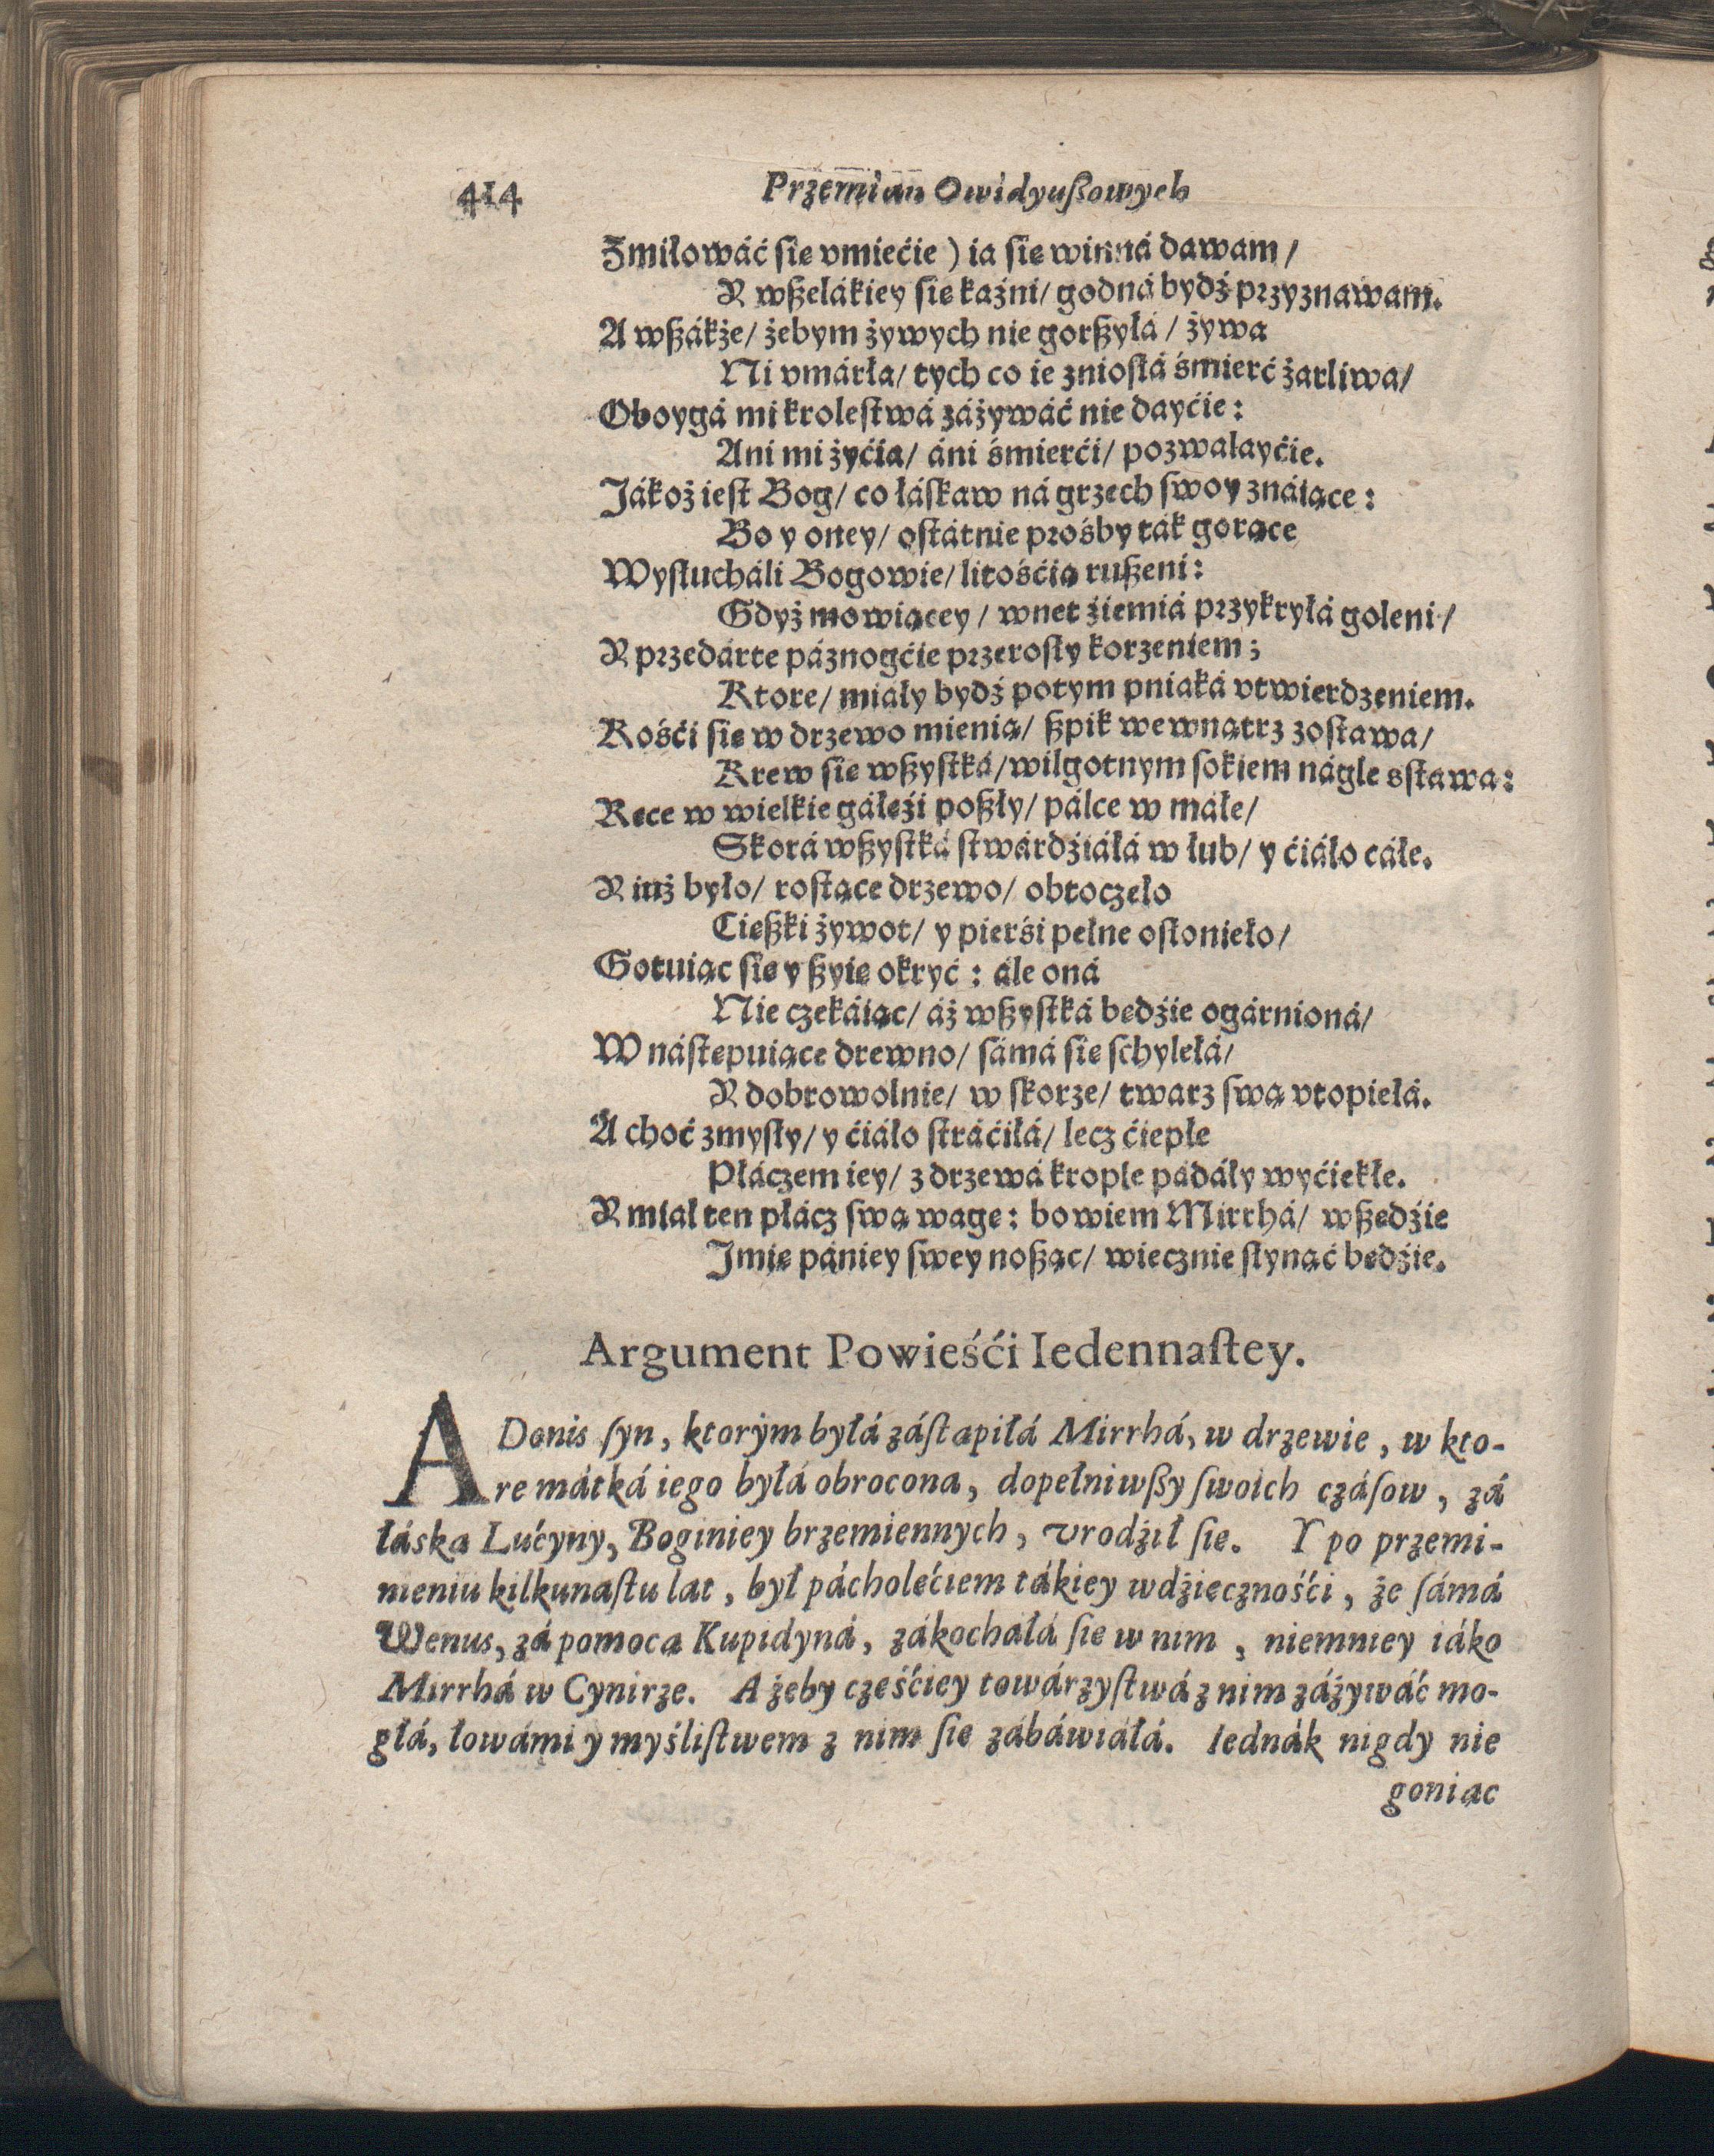 414 Przemian Owidyuſzowych
Zmiłowáć ſię vmiećie) ia ſię winná dawam/
Y wßelákiey ſię kaźni/ godná bydź przyznawam.
A wßákże/ żebym żywych nie gorßyłá/ żywa
Ni vmárła/ tych co ie znioſłá śmierć żarliwa/
Oboygá mi kroleſtwá záżywáć nie dayćie:
Ani mi żyćia/ áni śmierći/ pozwalayćie.
Jákoż ieſt Bog/ co łáſkaw ná grzech ſwoy znáiące:
Bo y oney/ oſtátnie prośby ták gorące
Wyſłucháli Bogowie/ litośćią rußeni:
Gdyż mowiącey/ wnet źiemiá przykryłá goleni/
Y przedárte páznogćie przeroſły korzeniem;
Ktore/ miáły bydź potym pniaká vtwierdzeniem.
Kośći ſię w drzewo mienią/ ßpik wewnątrz zoſtawa/
Krew ſię wßyſtká/ wilgotnym ſokiem nágle sſtawa:
Ręce w wielkie gáłęźi poßły/ pálce w máłe/
Skorá wßyſtká ſtwárdźiáłá w łub/ y ćiáło cáłe.
Y iuż było/ roſtące drzewo/ obtoczeło
Cięßki żywot/ y pierśi pełne oſłonieło/
Gotuiąc ſię y ßyię okryć: ále oná
Nie czekáiąc/ áż wßyſtká będźie ogárnioná/
W náſtępuiące drewno/ ſámá ſię ſchylełá/
Y dobrowolnie/ w ſkorze/ twarz ſwą vtopiełá.
A choć zmyſły/ y ćiáło ſtráćiłá/ lecz ćiepłe
Płáczem iey/ z drzewá krople pádáły wyćiekłe.
Y miał ten płácz ſwą wagę: bowiem Mirrhá/ wßędźie
Jmię pániey ſwey noßąc/ wiecznie ſłynąć będźie.
Argument Powieśći Iedennaſtey.
ADonis ſyn, ktorym byłá záſtąpiłá Mirrhá, w drzewie, w kto-
re mátká iego byłá obrocona, dopełniwßy ſwoich czáſow, zá
łáską Lućyny, Boginiey brzemiennych, vrodźił ſię. Y po przemi-
nieniu kilkunaſtu lat, był pácholęćiem tákiey wdźięcznośći, że ſámá
Wenus, zá pomocą Kupidyná, zákochałá ſię w nim, niemniey iáko
Mirrhá w Cynirze. A żeby częśćiey towárzyſtwá z nim záżywáć mo-
głá, łowámi y myśliſtwem z nim ſię zábáwiáłá. Iednák nigdy nie
goniąc